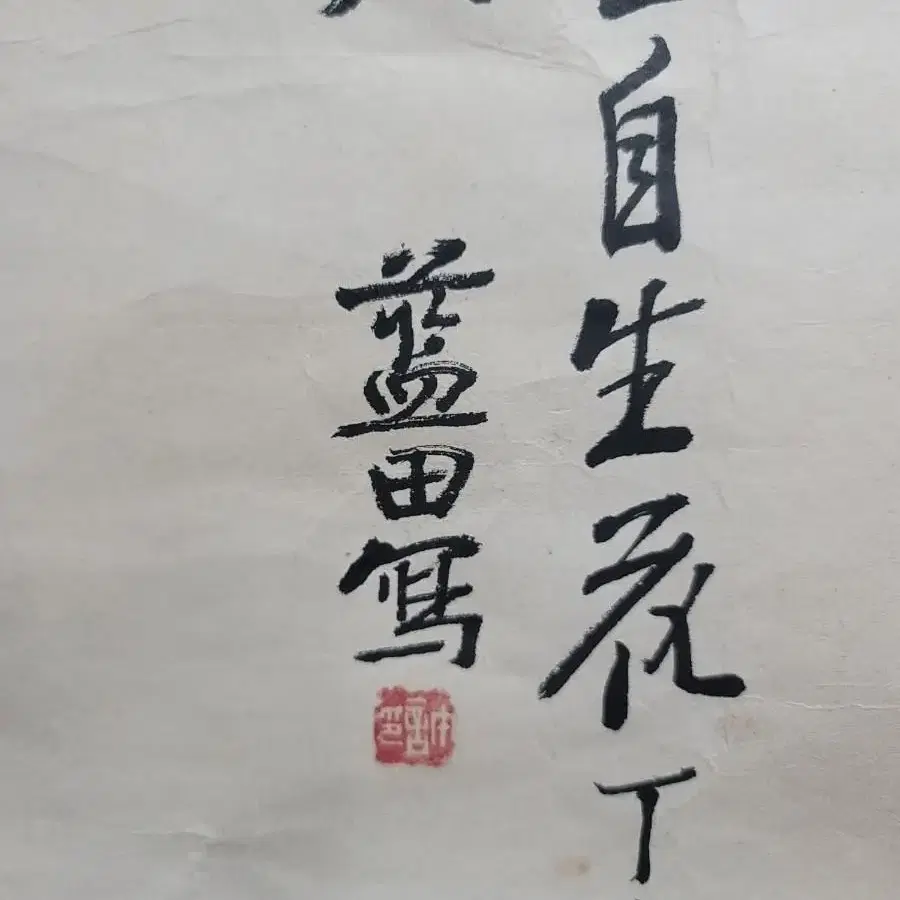 自生花丁
藍田寫